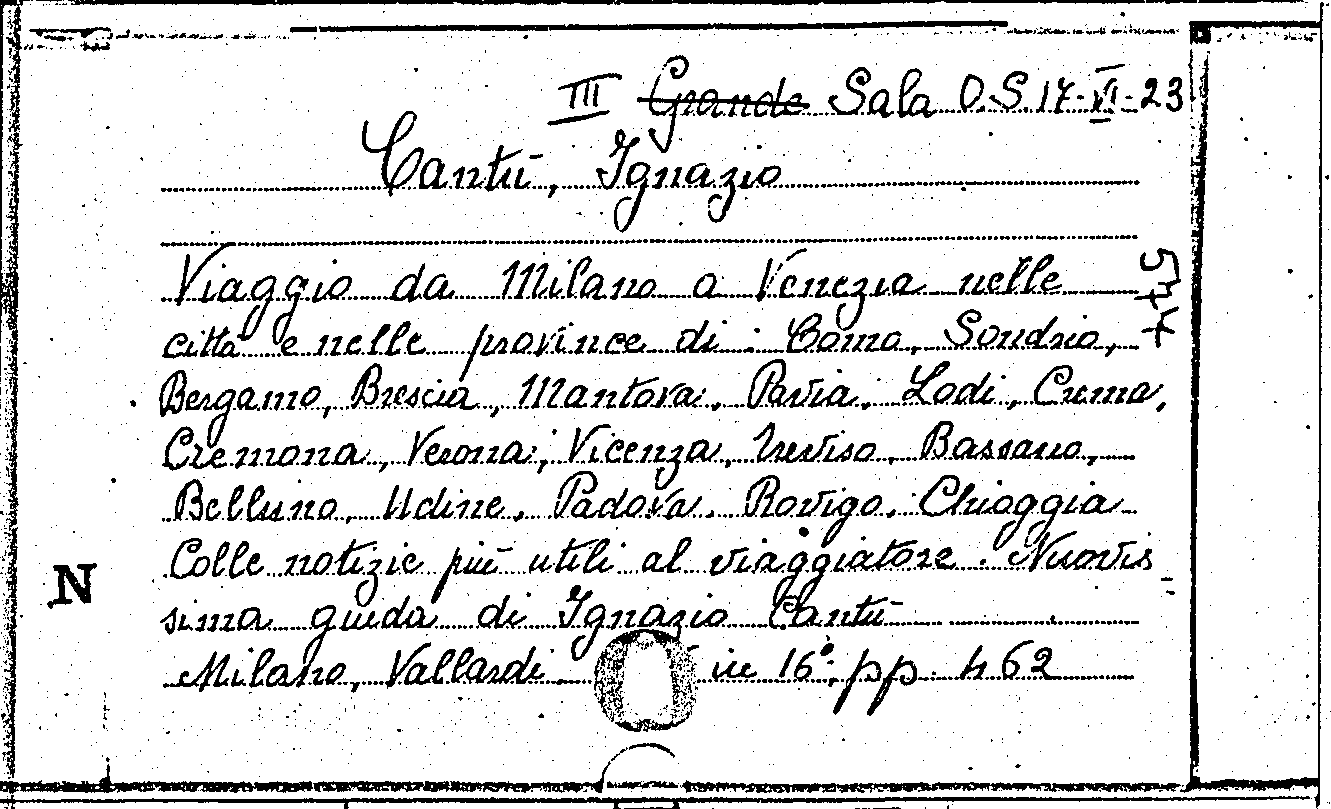 III Grande Sala O.S.14-VI-23
Cantù, Ignazio
Viaggio da Milano a Venezia nelle
città e nelle province di: Como, Sondrio,
Bergamo, Brescia, Mantova, Pavia, Lodi, Crema,
Cremona, Verona, Vicenza, Treviso, Bassano,
Belluno, Udine, Padova, Rovigo, Chioggia
Colle notizie più utili al viaggiatore. Nuovis
sima guida di Ignazio Cantù
N
Milano, Vallardi. in 16°; pp. 462